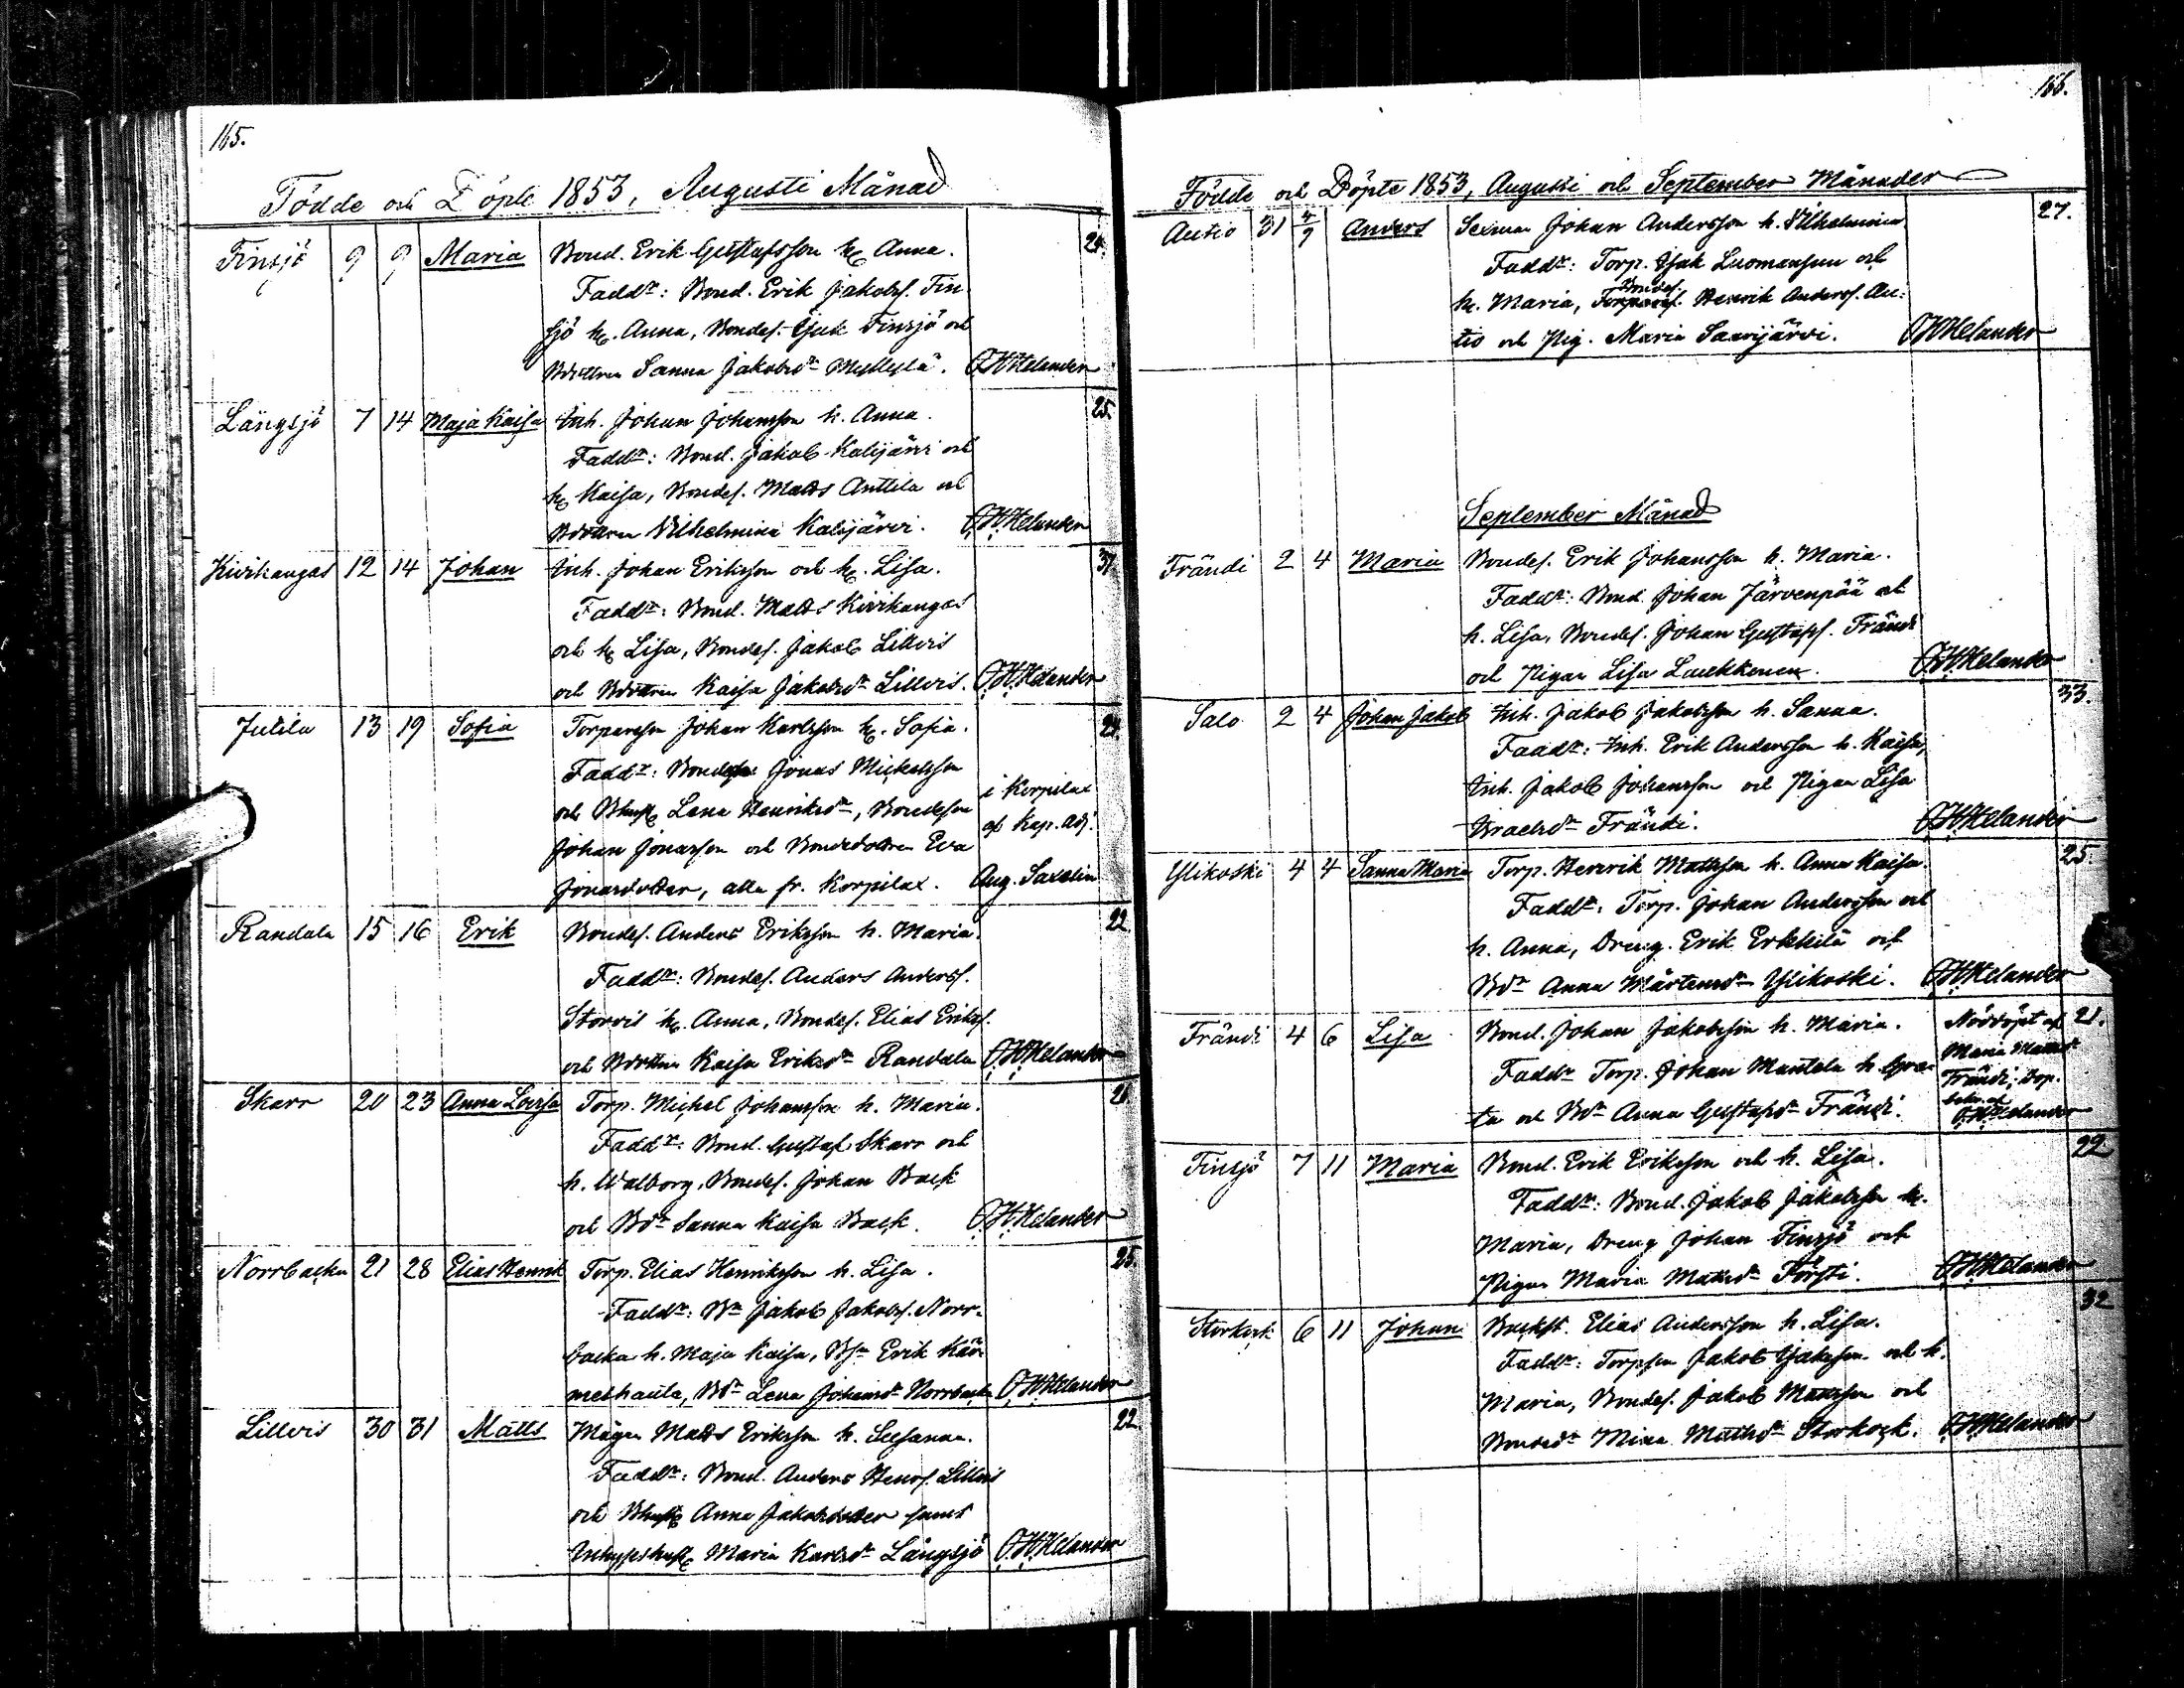 165.
Födde och Döpte 1853, Augusti Månad
Finsjö 9 9 Maria Bond. Erik Gustafsson h. Anna. 24.
Faddr: Bond. Erik Jakobs. Fin
sjö h. Anna, Bondes. Isak Finsjö och
Bdottren Sanna Jakobsdr Myllylä. O.H.Helander
Långsjö 7 14 Maja Kaisa Inh. Johan Johansson h. Anna. 25.
Faddr: Bond. Jakob Kalijärvi och
h. Kaisa, Bondes. Matts Anttila och
Bdottren Vilhelmina Kalijärvi. O.H.Helander
Kivikangas 12 14 Johan Inh. Johan Eriksson och h. Lisa. 37.
Faddr: Bond. Matts Kivikangas
och h. Lisa, Bondes. Jakob Lillvis
och Bdottren Kaisa Jakobsdr Lillvis. O.H.Helander
Jutila 13 19 Sofia Torparesson Johan Karlsson h. Sofia. 24.
Faddr: Bonden Jonas Mickelsson
och Bhust. Lena Henriksdr, Bondeson i Korpilax
Johan Jonasson och Bondedottren Eva af Kap. Adj.
Jonasdotter, alla fr. Korpilax. Aug. Saxelin
Randala 15 16 Erik Bondes. Anders Eriksson h. Maria. 22
Faddr: Bondes. Anders Anderss.
Storvis h. Anna, Bondes. Elias Eriks.
och Bdottren Kaisa Eriksdr Randala O.H.Helander
Skarr 20 23 Anna Lovisa Torp. Michel Johansson h. Maria. 28
Faddr: Bond. Gustaf Skarr och
h. Walborg, Bondes. Johan Back
och Bdr Sanna Kaisa Back. O.H.Helander
Norrbacka 21 28 Elias Henrik Torp. Elias Henriksson h. Lisa. 25.
Faddr: Bn Jakob Jakobs. Norr-
backa h. Maja Kaisa, Bsn Erik Kär
meshauta, Bdr Lena Johansdr Norrbacka O.H.Helander
Lillvis 30 31 Matts Mågen Matts Eriksson h. Susanna. 22.
Faddr: Bond. Anders Henrs. Lillvis
och Bhust. Anna Jakobsdotter samt
Inhyseshust. Maria Karlsdr Långsjö O.H.Helander
166.
Födde och Döpte 1853, Augusti och September Månader
Autio 31 4/9 Anders Sexman Johan Andersson h. Vilhelmina 27.
Faddr: Torp. Isak Luomansuu och
Bondes.
h. Maria, Torpares. Henrik Anderss. Au-
tio och Pig. Maria Saarijärvi. O.H.Helander
September Månad
Frändi 2 4 Maria Bondes. Erik Johansson h. Maria.
Faddr: Bond. Johan Järvenpää och
h. Lisa, Bondes. Johan Gustafs. Frändi
och Pigan Lisa Laukkonen. O.H.Helander
Salo 2 4 Johan Jakob Inh. Jakob Jakobsson h. Sanna. 33.
Faddr: Inh. Erik Andersson h. Kaisa,
Inh. Jakob Johansson och Pigan Lisa
Israelsdr Frändi. O.H.Helander
Ylikoski 4 4 Sanna Maria Torp. Henrik Mattsson h. Anna Kaisa. 25.
Faddr: Torp. Johan Andersson och
h. Anna, Dreng. Erik Erkkilä och
Bdr Anna Mårtensdr Ylikoski. O.H.Helander
Frändi 4 6 Lisa Bond. Johan Jakobsson h. Maria. Nöddöpt af 21.
Faddr Torp. Johan Mantela h. Gre- Maria Mattsdr
ta och Bdr Anna Gustafsdr Frändi. Frändi, Dop.
bekr. af
O.H.Helander
Finsjö 7 11 Maria Bond. Erik Eriksson och h. Lisa. 22
Faddr: Bond. Jakob Jakobsson h.
Maria, Dreng Johan Finsjö och
Pigan Maria Mattsdr Försti. O.H.Helander
Storkock 6 11 Johan Backst. Elias Andersson h. Lisa. 32
Faddr: Torpson Jakob Isaksson och h.
Maria, Bondes. Jakob Mattsson och
Bondedr Mina Mattsdr Storkock. O.H.Helander